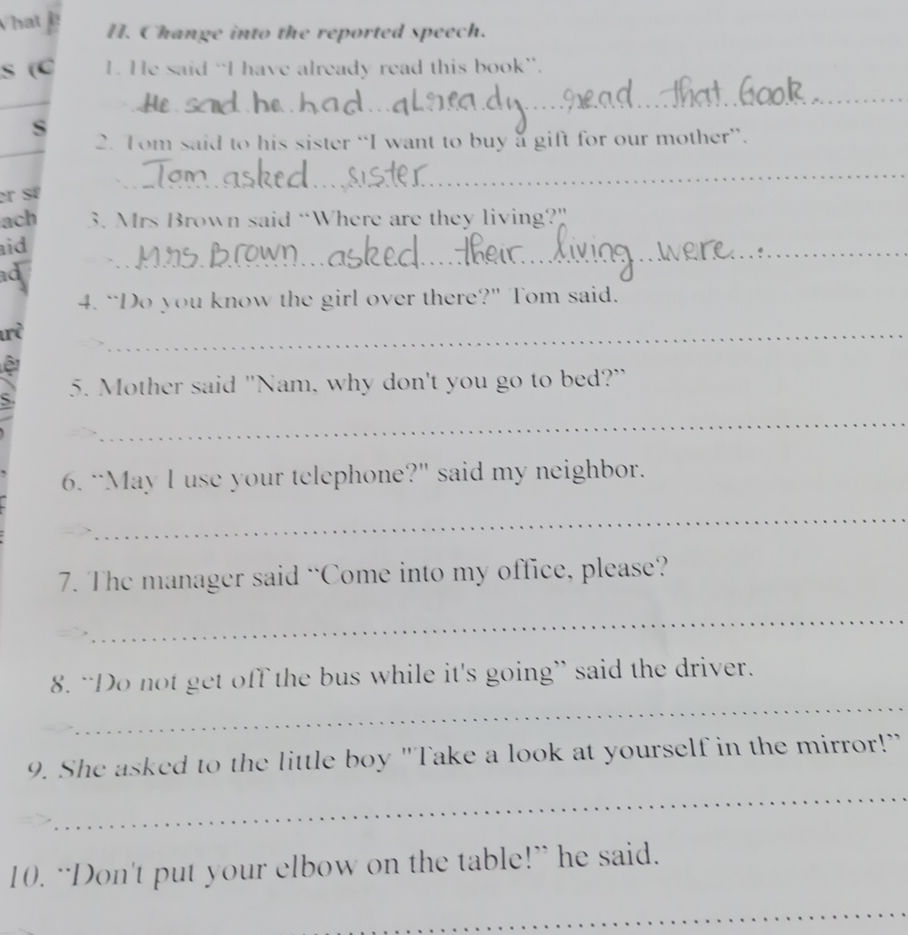 II. Change into the reported speech.
1. He said “I have already read this book”.
He said he had already read that book.
2. Tom said to his sister “I want to buy a gift for our mother”.
Tom asked sister
3. Mrs Brown said “Where are they living?"
Mrs Brown asked their living were.
4. “Do you know the girl over there?" Tom said.
5. Mother said "Nam, why don't you go to bed?”
6. “May I use your telephone?" said my neighbor.
7. The manager said “Come into my office, please?
8. “Do not get off the bus while it's going” said the driver.
9. She asked to the little boy "Take a look at yourself in the mirror!”
10. “Don't put your elbow on the table!” he said.